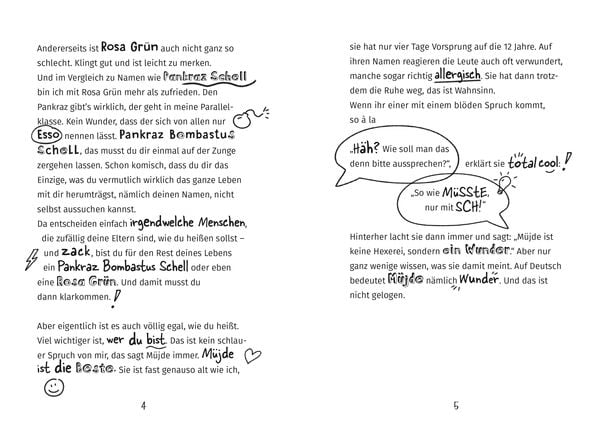 Andererseits ist Rosa Grün auch nicht ganz so
schlecht. Klingt gut und ist leicht zu merken.
Und im Vergleich zu Namen wie Pankraz Schell
bin ich mit Rosa Grün mehr als zufrieden. Den
Pankraz gibt's wirklich, der geht in meine Parallel-
klasse. Kein Wunder, dass der sich von allen nur
Esso nennen lässt. Pankraz Bombastus
Schell, das musst du dir einmal auf der Zunge
zergehen lassen. Schon komisch, dass du dir das
Einzige, was du vermutlich wirklich das ganze Leben
mit dir herumträgst, nämlich deinen Namen, nicht
selbst aussuchen kannst.
Da entscheiden einfach irgendwelche Menschen,
die zufällig deine Eltern sind, wie du heißen sollst –
und zack, bist du für den Rest deines Lebens
ein Pankraz Bombastus Schell oder eben
eine Rosa Grün. Und damit musst du
dann klarkommen.!
Aber eigentlich ist es auch völlig egal, wie du heißt.
Viel wichtiger ist, wer du bist. Das ist kein schlau-
er Spruch von mir, das sagt Müjde immer. Müjde
ist die Beste. Sie ist fast genauso alt wie ich,
4
sie hat nur vier Tage Vorsprung auf die 12 Jahre. Auf
ihren Namen reagieren die Leute auch oft verwundert,
manche sogar richtig allergisch. Sie hat dann trotz-
dem die Ruhe weg, das ist Wahnsinn.
Wenn ihr einer mit einem blöden Spruch kommt,
so à la
„Häh? Wie soll man das
denn bitte aussprechen?", erklärt sie total cool:!
„So wie MÜSSTE,
nur mit SCH!"
Hinterher lacht sie dann immer und sagt: „Müjde ist
keine Hexerei, sondern ein Wunder." Aber nur
ganz wenige wissen, was sie damit meint. Auf Deutsch
bedeutet Müjde nämlich Wunder. Und das ist
nicht gelogen.
5